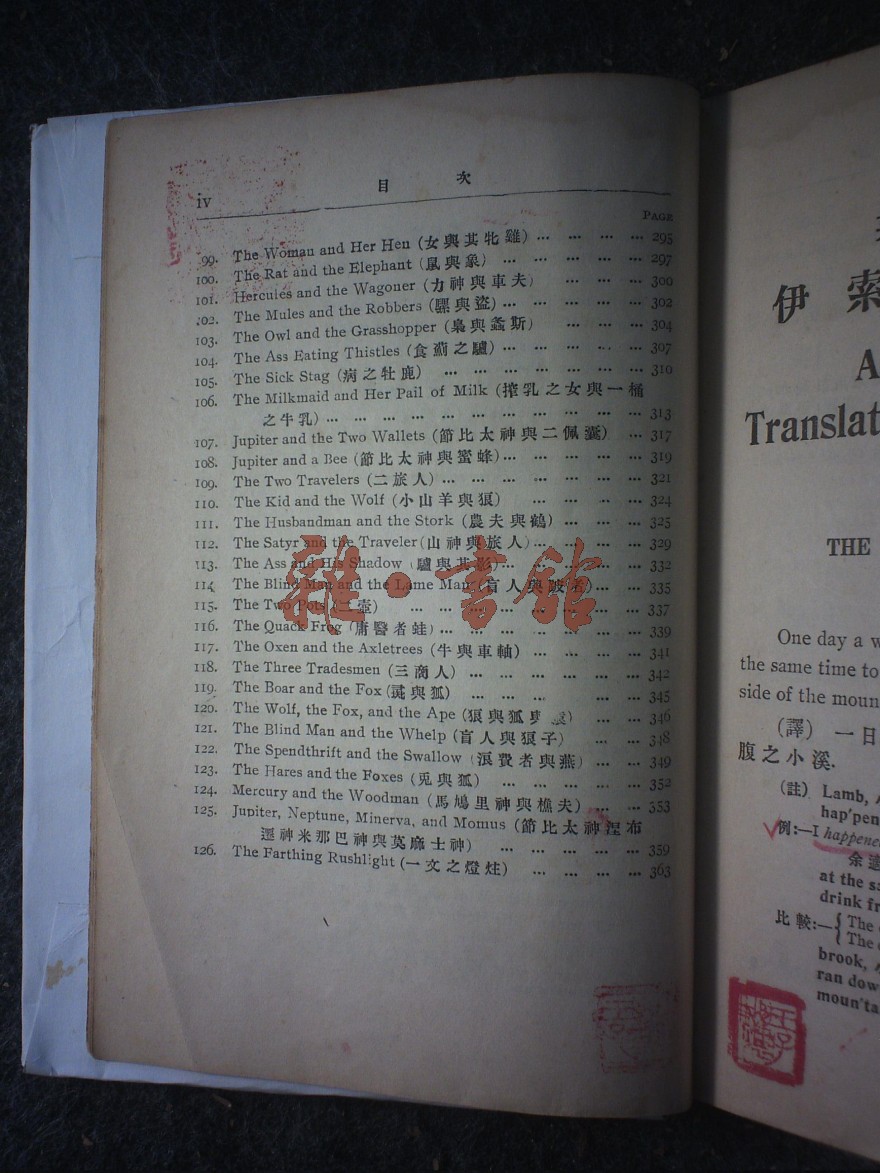 iv
目 次
PAGE
99. The Woman and Her Hen (女與其牝雞) ... ... ... ... 295
100. The Rat and the Elephant (鼠與象) ... ... ... ... 297
101. Hercules and the Wagoner (力神與車夫) ... ... ... 300
102. The Mules and the Robbers (騾與盜) ... ... ... ... 302
103. The Owl and the Grasshopper (梟與螽斯) ... ... ... 304
104. The Ass Eating Thistles (食薊之驢) ... ... ... ... ... 307
105. The Sick Stag (病之牡鹿) ... ... ... ... ... ... 310
106. The Milkmaid and Her Pail of Milk (搾乳之女與一桶
之牛乳) ... ... ... ... ... ... ... ... ... ... 313
107. Jupiter and the Two Wallets (節比太神與二佩囊) ... 317
108. Jupiter and a Bee (節比太神與蜜蜂) ... ... ... ... 319
109. The Two Travelers (二旅人) ... ... ... ... ... ... 321
110. The Kid and the Wolf (小山羊與狼) ... ... ... ... 324
111. The Husbandman and the Stork (農夫與鶴) ... ... ... 325
112. The Satyr and the Traveler (山神與旅人) ... ... ... 329
113. The Ass and His Shadow (驢與其影) ... ... ... ... 332
114. The Blind Man and the Lame Man (盲人與跛者) ... ... 335
115. The Two Pots (二壺) ... ... ... ... ... ... ... 337
116. The Quack Frog (庸醫者蛙) ... ... ... ... ... ... 339
117. The Oxen and the Axletrees (牛與車軸) ... ... ... ... 341
118. The Three Tradesmen (三商人) ... ... ... ... ... 342
119. The Boar and the Fox (彘與狐) ... ... ... ... 345
120. The Wolf, the Fox, and the Ape (狼與狐與猿) ... ... 346
121. The Blind Man and the Whelp (盲人與狼子) ... ... 348
122. The Spendthrift and the Swallow (浪費者與燕) ... ... 349
123. The Hares and the Foxes (兎與狐) ... ... ... ... 352
124. Mercury and the Woodman (馬鳩里神與樵夫) ... ... 353
125. Jupiter, Neptune, Minerva, and Momus (節比太神涅布
遷神米那巴神與莫麻士神) ... ... ... ... ... 359
126. The Farthing Rushlight (一文之燈炷) ... ... ... ... 363
雜·書館
伊 索
A
Translat
THE
One day a w
the same time to
side of the moun
(譯) 一日
腹之小溪.
(註) Lamb,
hap'pen
例:—I happened
at the sa
drink fr
比較:—{The
The
brook,
ran dow
moun'ta